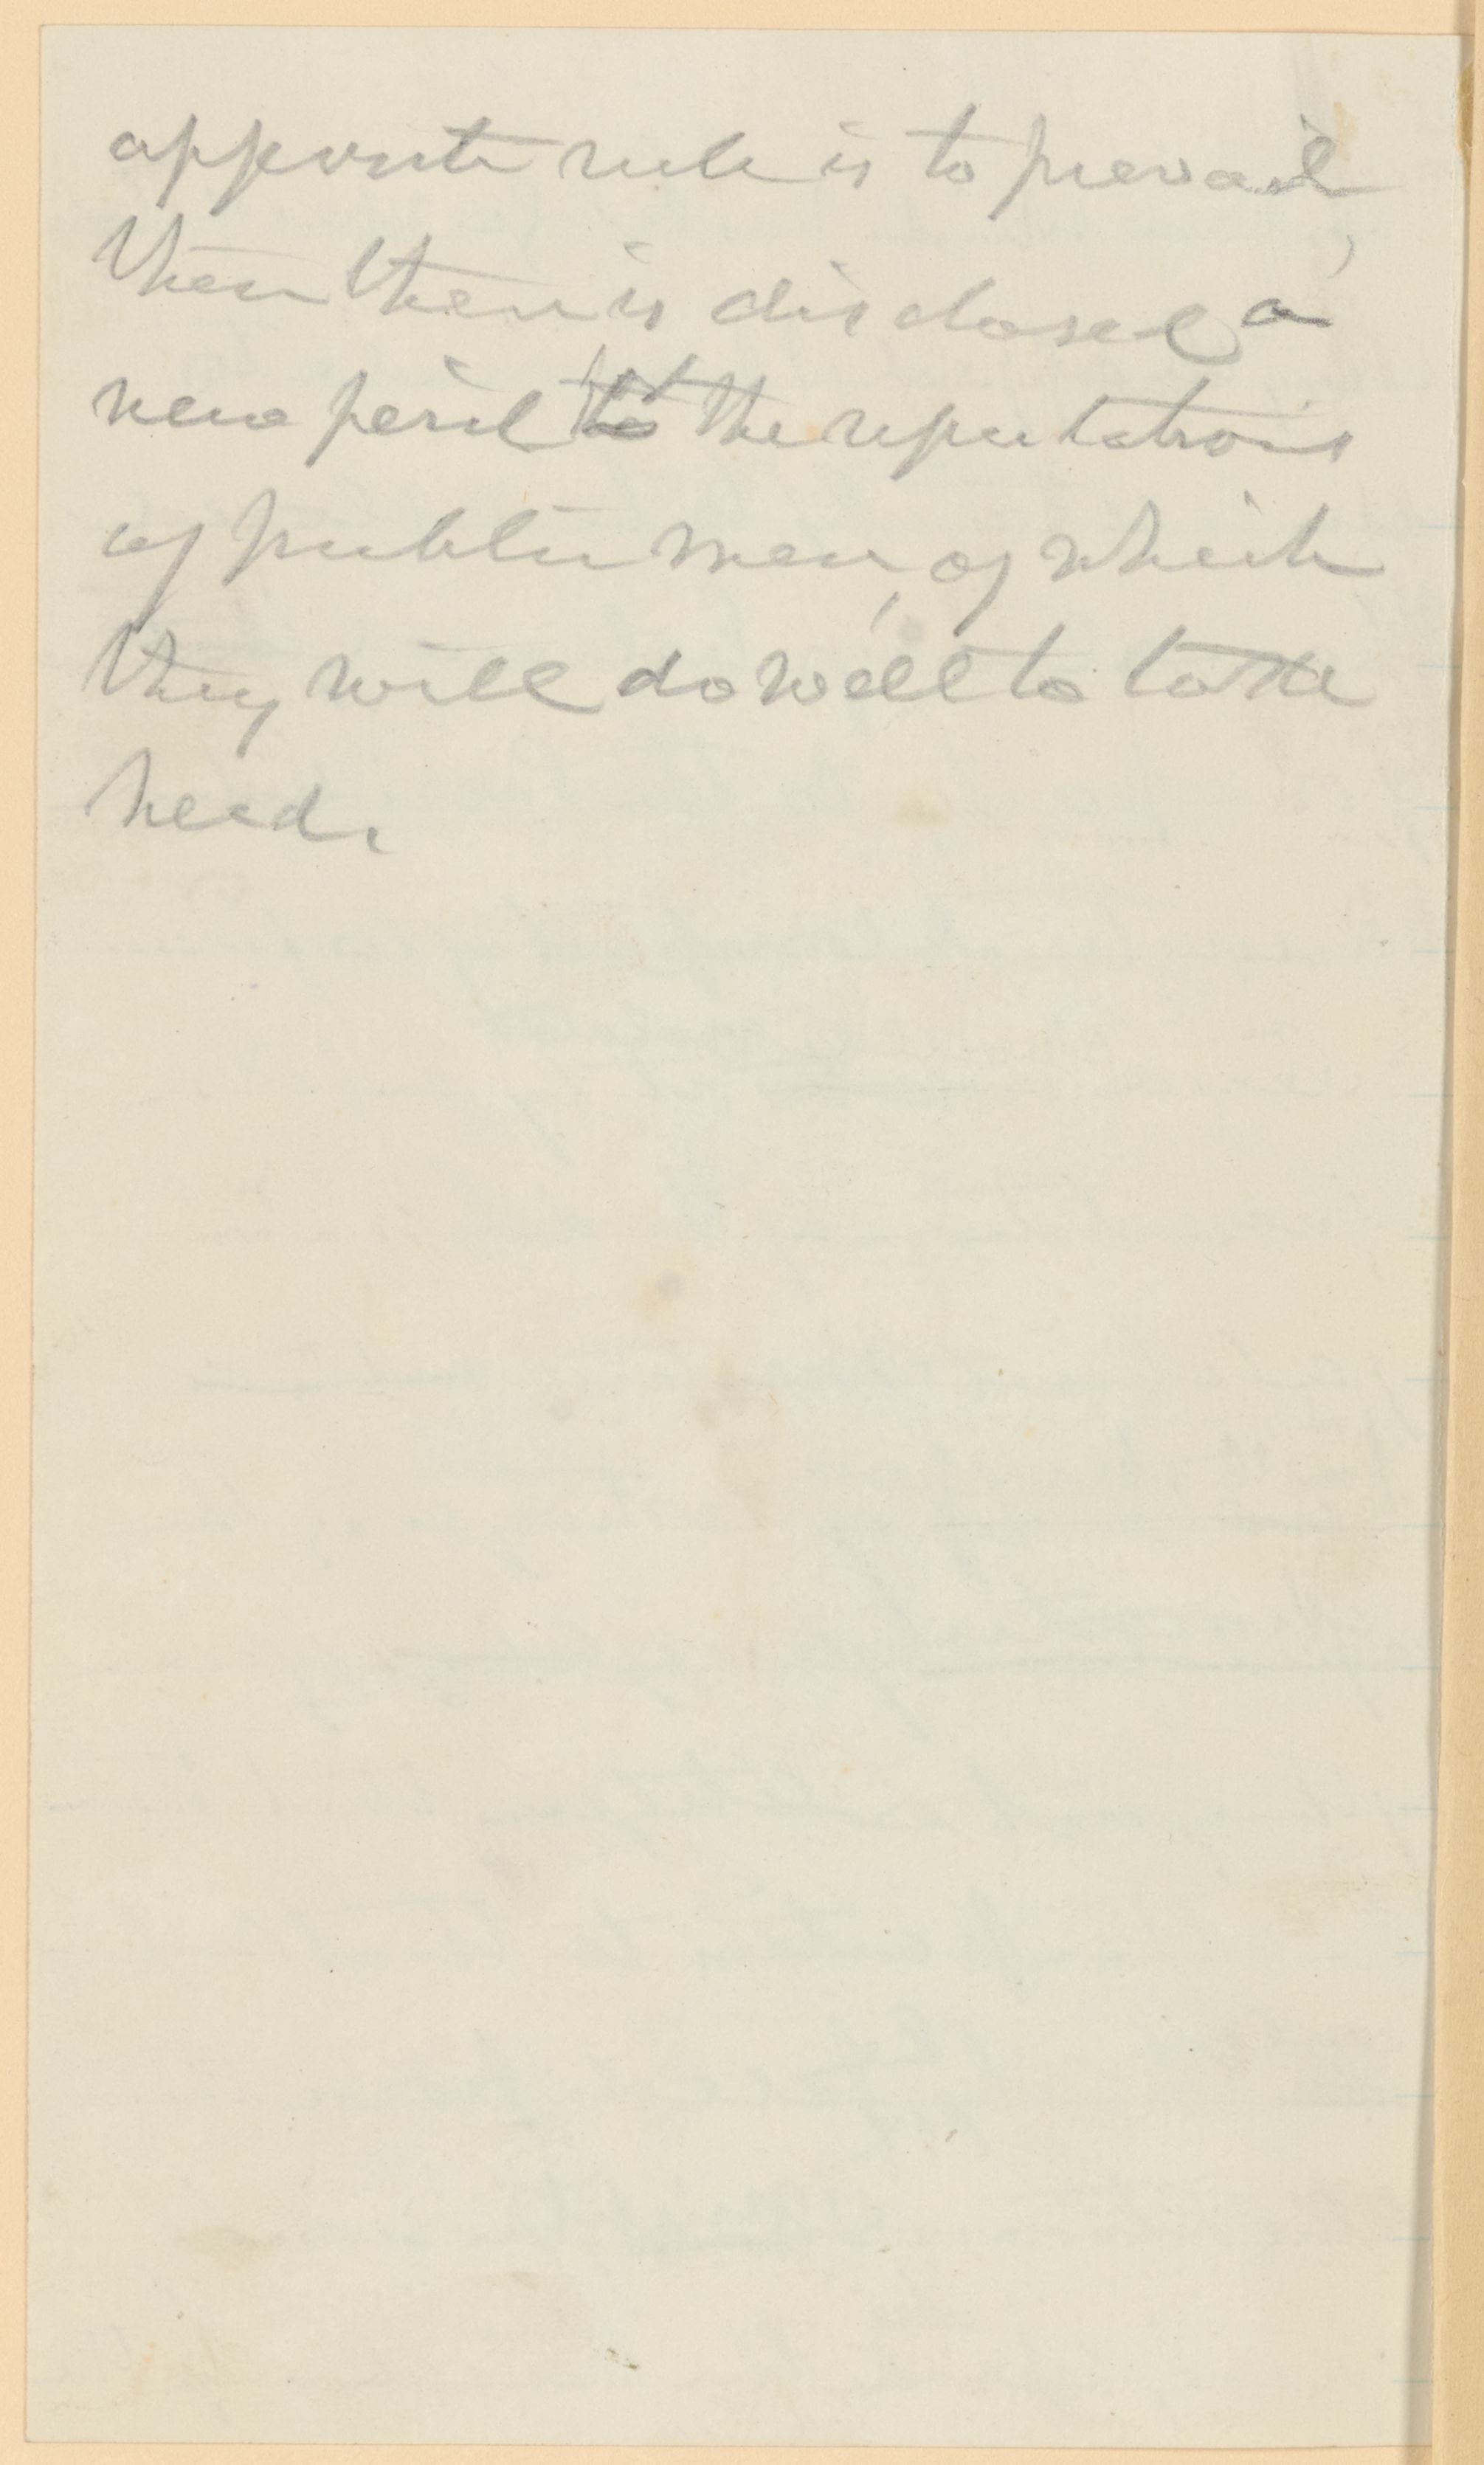 opposite rule is to prevail,
then there is disclosed a
new peril to the reputations
of public men, of which
they will do well to take
heed.